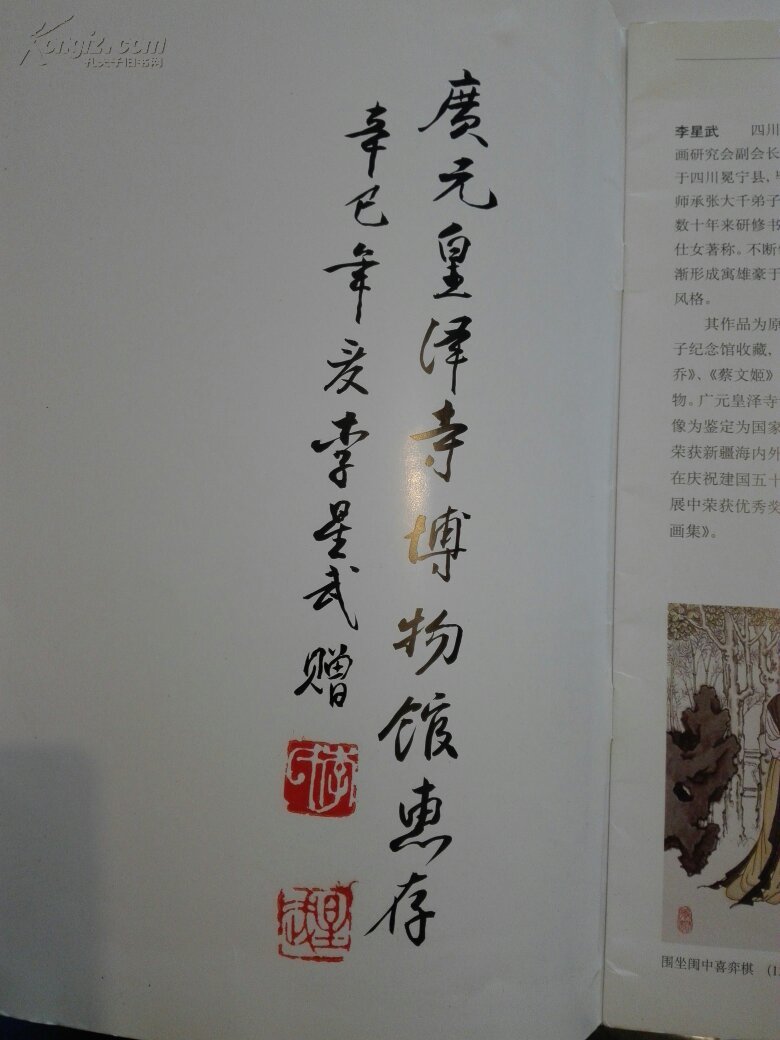 廣元皇泽寺博物馆惠存
辛巳年夏李星武赠
李星武 四川
画研究会副会长
于四川冕宁县、毕
师承张大千弟子
数十年来研修书
仕女著称。不断
渐形成寓雄豪于
风格。
其作品为原
子纪念馆收藏，
乔》、《蔡文姬》
物。广元皇泽寺
像为鉴定为国家
荣获新疆海内外
在庆祝建国五十
展中荣获优秀奖
画集》。
围坐闺中喜弈棋 (1
Kongfz.com
孔夫子旧书网